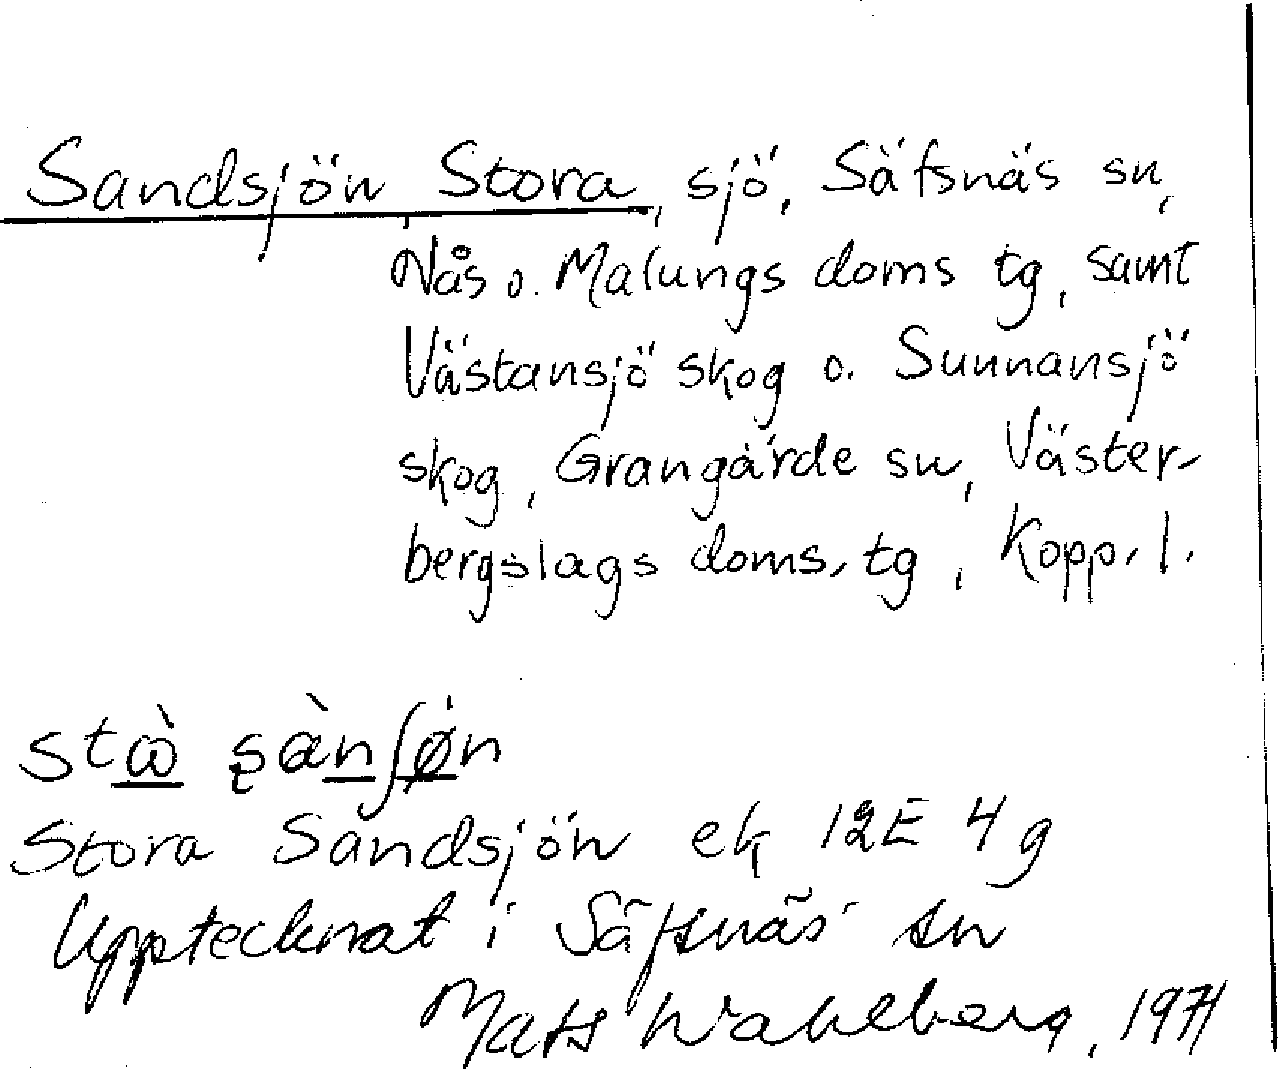 Sandsjön, Stora, sjö, Säfsnäs sn,
Nås o. Malungs doms tg, samt
Västansjö skog o. Sunnansjö
skog, Grangärde sn, Väster-
bergslags doms. tg, Kopp. l.
Stora Sandsjön ek 12E 4g
Upptecknat i Säfsnäs sn
Mats Wahlberg, 1971